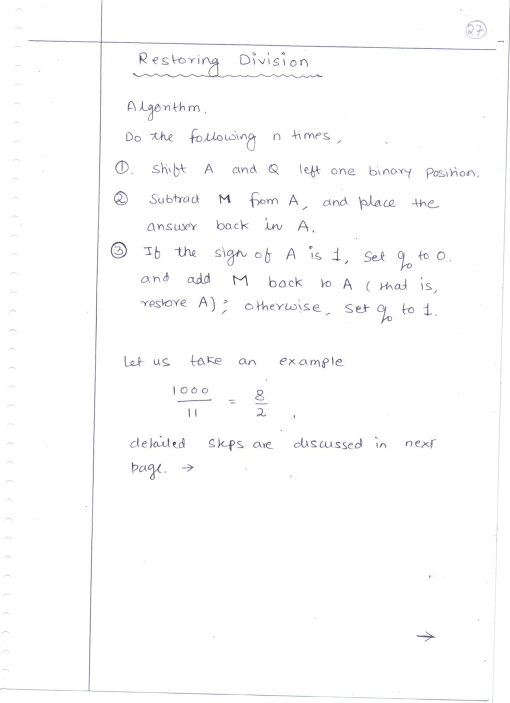 27
Restoring Division
Algorithm.
Do the following n times,
①. Shift A and Q left one binary position.
② Subtract M from A, and place the
answer back in A.
③ If the sign of A is 1, set q₀ to 0.
and add M back to A (that is,
restore A); otherwise, set q₀ to 1.
Let us take an example
1000/11 = 8/2,
detailed steps are discussed in next
page. →
→